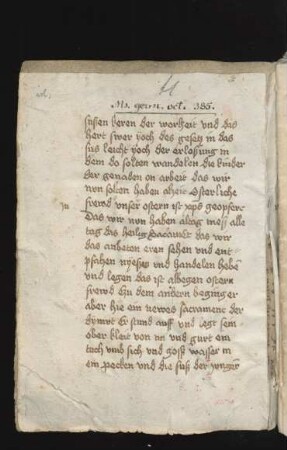 Ms. germ. oct. 385.
süssen keren der worheit vnd dis
hert swer yoch des gesetz in das
süs leicht yoch der erlosung in
dem do solten wandelen die kinder
der genaden on arbeit das wir
nun solten haben alzeit österliche
frewd vnser ostern ist xps geopfert
Das wir nun haben altag mess alle
tag dis heilig sacament das wir
das anbeten eren sehen vnd ent
pfahen nyessen vnd handelen heben
vnd legen das ist albegen ostern
frewd Czu dem andern beging er
aber hie ein newes sacrament der
dymut Er stund auff vnd legt sein
ober kleit von im vnd gurt ein
tuch vmb sich vnd goss wasser in
ein pecken vnd die füss der yunger